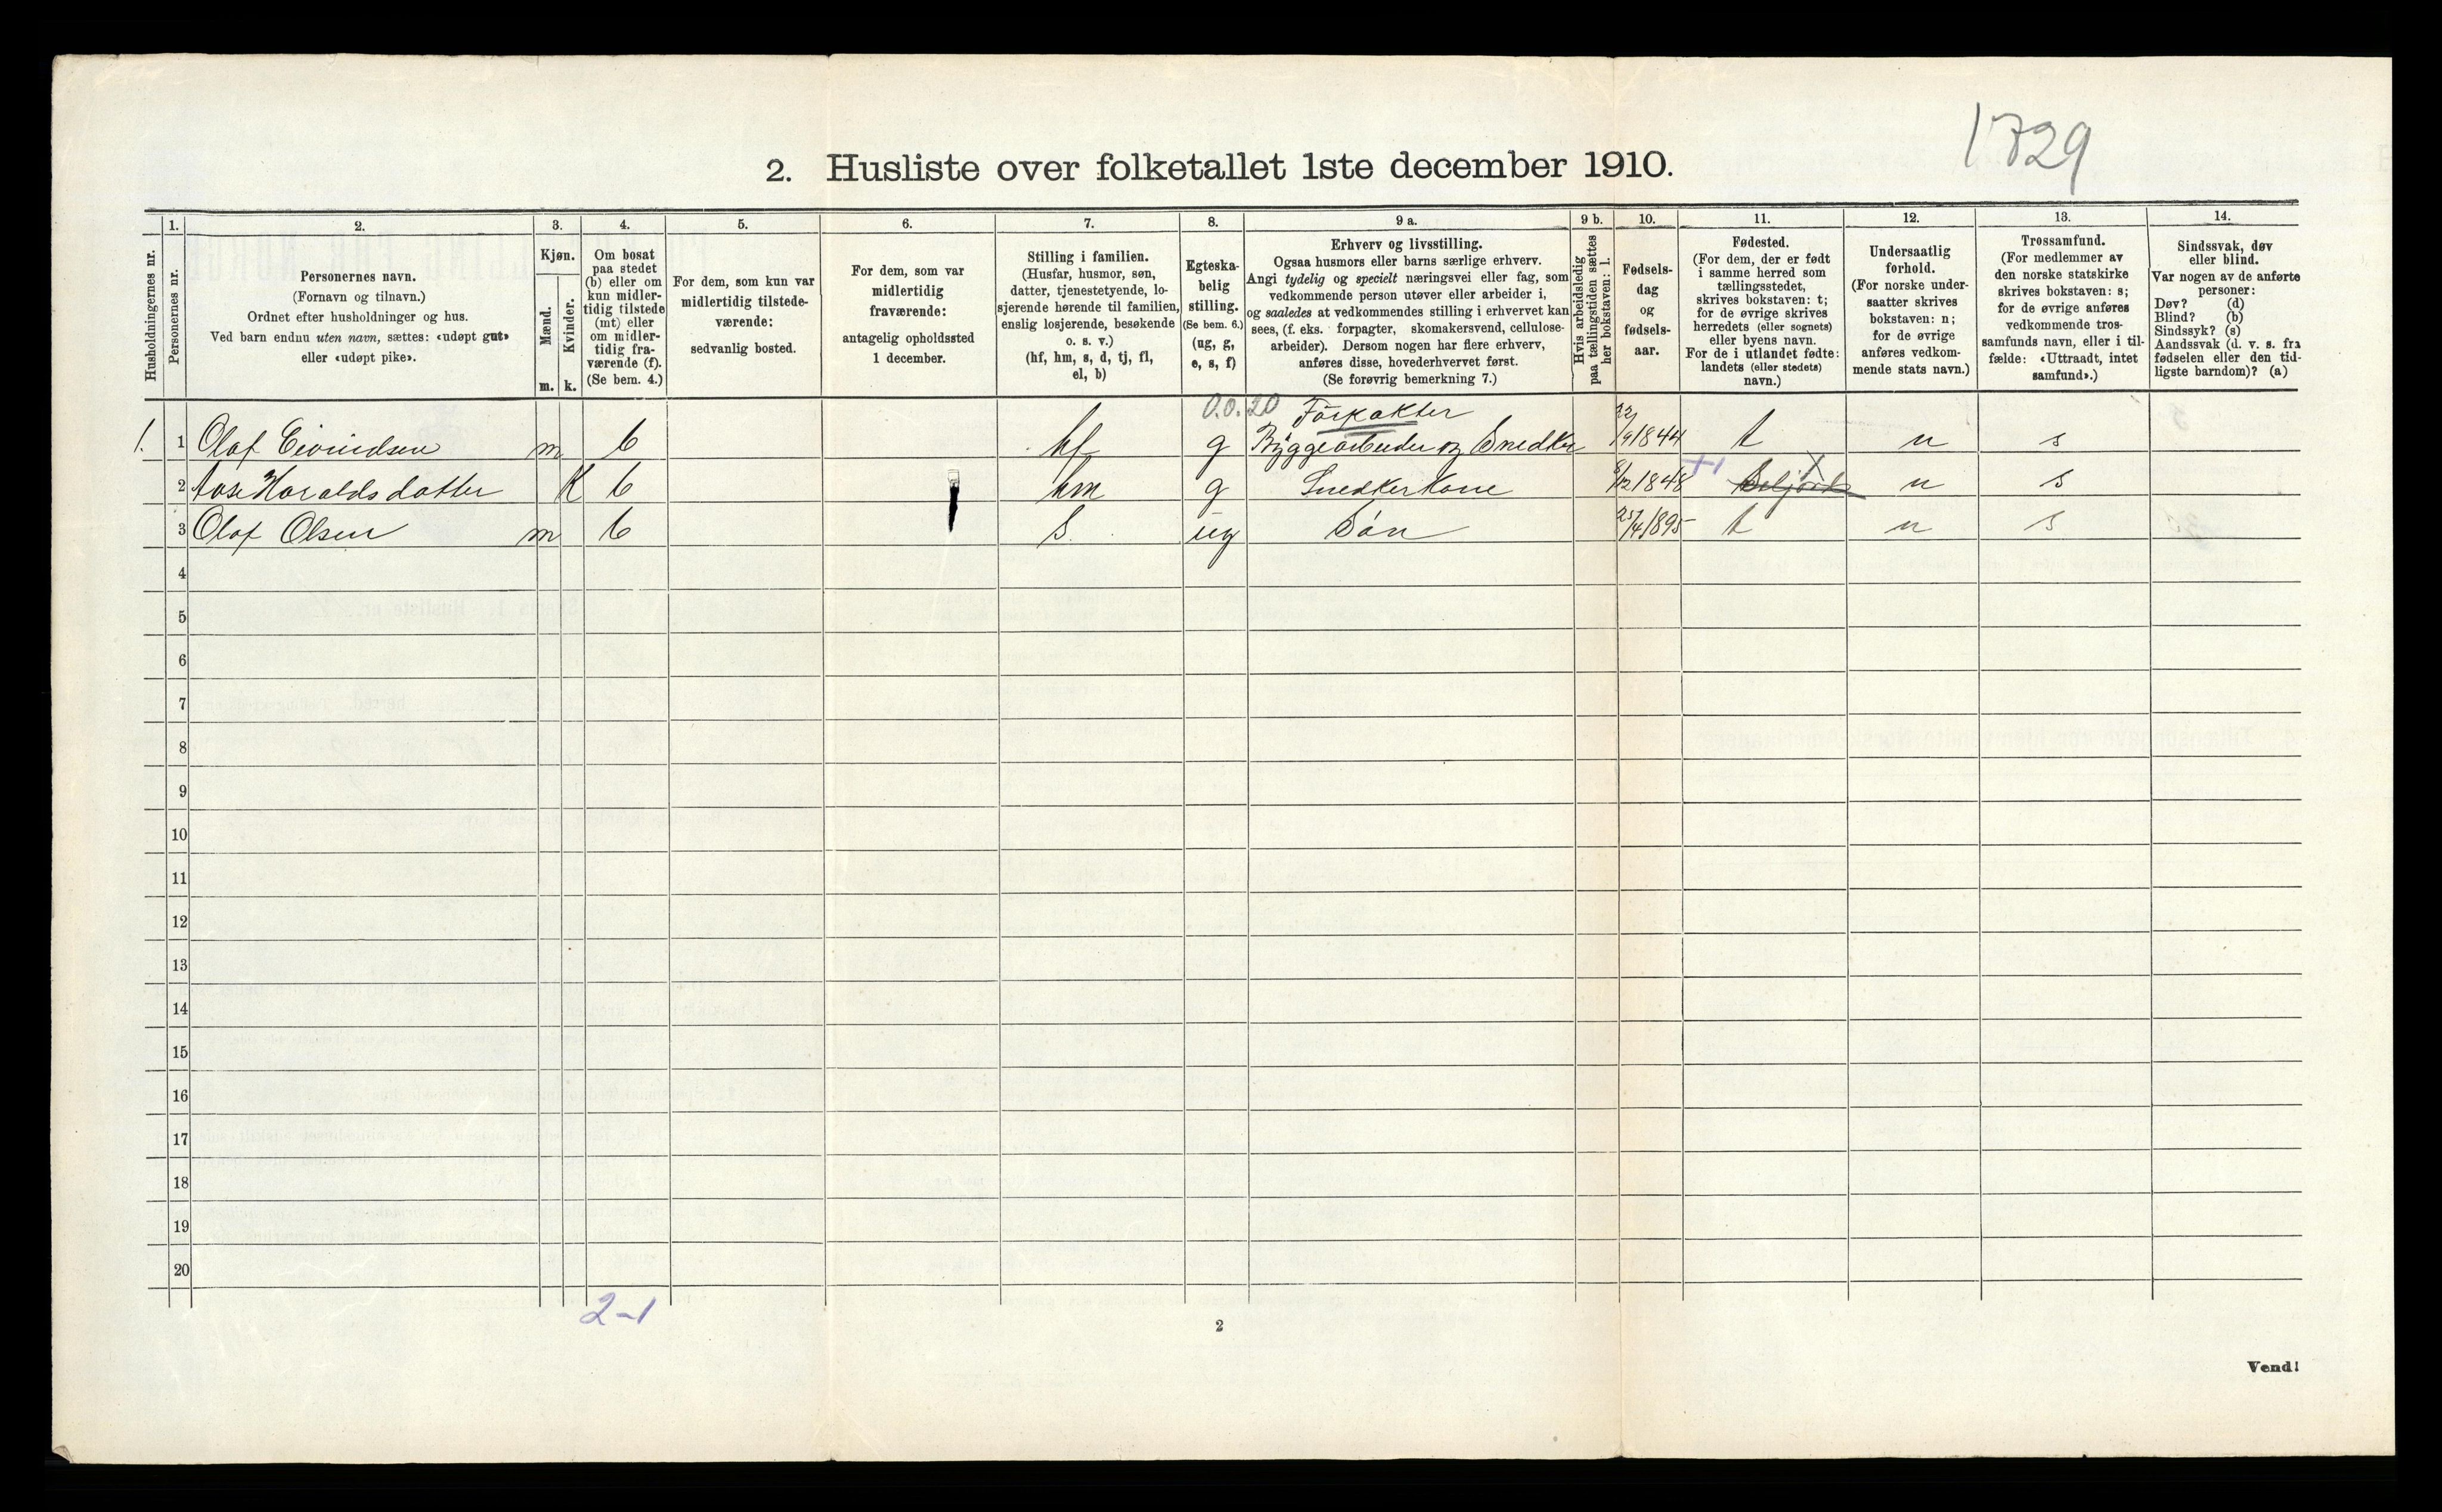 1729
2. Husliste over folketallet 1ste december 1910.
Husholdningernes nr.
1.
Personernes nr.
2.
Personernes navn.
(Fornavn og tilnavn.)
Ordnet efter husholdninger og hus.
Ved barn endnu uten navn, sættes: «udøpt gut»
eller «udøpt pike».
3.
Kjøn.
Mænd.
m.
Kvinder.
k.
4.
Om bosat
paa stedet
(b) eller om
kun midler-
tidig tilstede
(mt) eller
om midler-
tidig fra-
værende (f).
(Se bem. 4.)
5.
For dem, som kun var
midlertidig tilstede-
værende:
sedvanlig bosted.
6.
For dem, som var
midlertidig
fraværende:
antagelig opholdssted
1 december.
7.
Stilling i familien.
(Husfar, husmor, søn,
datter, tjenestetyende, lo-
sjerende hørende til familien,
enslig losjerende, besøkende
o. s. v.)
(hf, hm, s, d, tj, fl,
el, b)
8.
Egteska-
belig
stilling.
(Se bem. 6.)
(ug, g,
e, s, f)
9 a.
Erhverv og livsstilling.
Ogsaa husmors eller barns særlige erhverv.
Angi tydelig og specielt næringsvei eller fag, som
vedkommende person utøver eller arbeider i,
og saaledes at vedkommendes stilling i erhvervet kan
sees, (f. eks. forpagter, skomakersvend, cellulose-
arbeider). Dersom nogen har flere erhverv,
anføres disse, hovederhvervet først.
(Se forøvrig bemerkning 7.)
9 b.
Hvis arbeidsledig
paa tællingstiden sættes
her bokstaven: l.
10.
Fødsels-
dag
og
fødsels-
aar.
11.
Fødested.
(For dem, der er født
i samme herred som
tællingsstedet,
skrives bokstaven: t;
for de øvrige skrives
herredets (eller sognets)
eller byens navn.
For de i utlandet fødte:
landets (eller stedets)
navn.)
12.
Undersaatlig
forhold.
(For norske under-
saatter skrives
bokstaven: n;
for de øvrige
anføres vedkom-
mende stats navn.)
13.
Trossamfund.
(For medlemmer av
den norske statskirke
skrives bokstaven: s;
for de øvrige anføres
vedkommende tros-
samfunds navn, eller i til-
fælde: «Uttraadt, intet
samfund».)
14.
Sindssvak, døv
eller blind.
Var nogen av de anførte
personer:
Døv? (d)
Blind? (b)
Sindssyk? (s)
Aandssvak (d. v. s. fra
fødselen eller den tid-
ligste barndom)? (a)
0.0.20 Forpakter
1. 1 Olaf Eivindsen m b hf g Byggearbeider og Snedker 22/9 1844 t n s
2 Aase Haraldsdatter K b hm g Snedkerkone 8/12 1848 +1 n s
3 Olaf Olsen m b s ug Søn 25/4 1895 t n s
4
5
6
7
8
9
10
11
12
13
14
15
16
17
18
19
20
2-1
2
Vend!